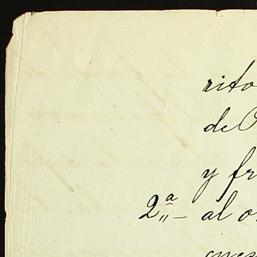 rito
de
y fr
2ª„— al o